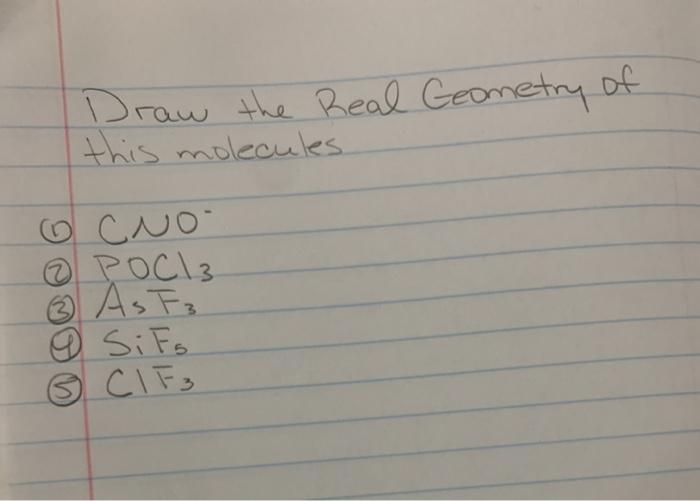 Draw the Real Geometry of
this molecules
① CNO⁻
② POCl₃
③ AsF₃
④ SiF₅
⑤ ClF₃